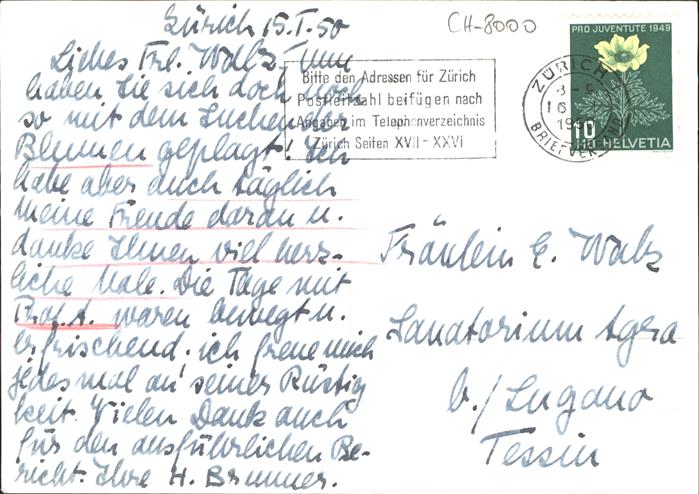 Zürich 15.I.50
Liebes Frl. Walz, nun
haben Sie sich doch noch
so mit dem Suchen der
Blumen geplagt! Ich
habe aber auch täglich
meine Freude daran u.
danke Ihnen viel herz-
liche Male. Die Tage mit
Prof. A. waren bewegt u.
erfrischend. ich freue mich
jedes mal an seiner Rüstig
keit. Vielen Dank auch
für den ausführlichen Be-
richt. Ihre H. Brunner.
CH-8000
Bitte den Adressen für Zürich
Postleitzahl beifügen nach
Angaben im Telephonverzeichnis
Zürich Seiten XVII - XXVI
ZÜRICH
16
BRIEFVERSAND
PRO JUVENTUTE 1949
10
HELVETIA
Fräulein E. Walz
Sanatorium Agra
b./Lugano
Tessin